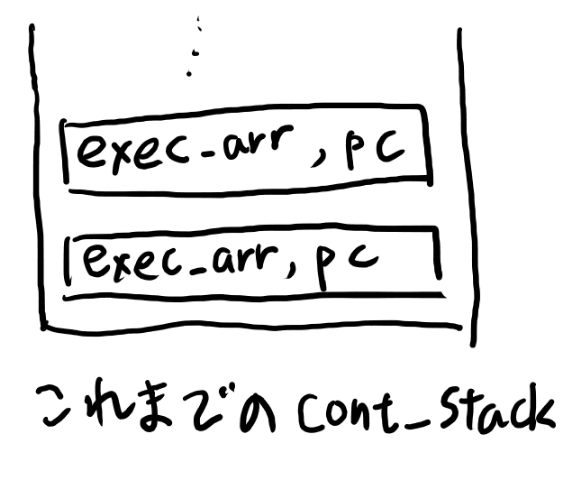 exec_arr, pc
exec_arr, pc
これまでのcont_stack